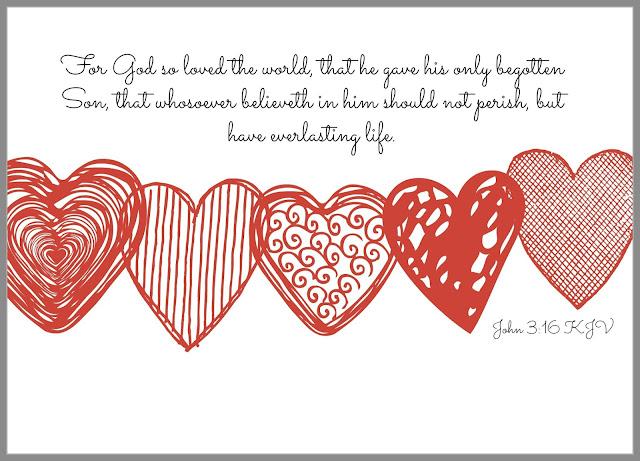 For God so loved the world, that he gave his only begotten
Son, that whosoever believeth in him should not perish, but
have everlasting life.
John 3:16 KJV